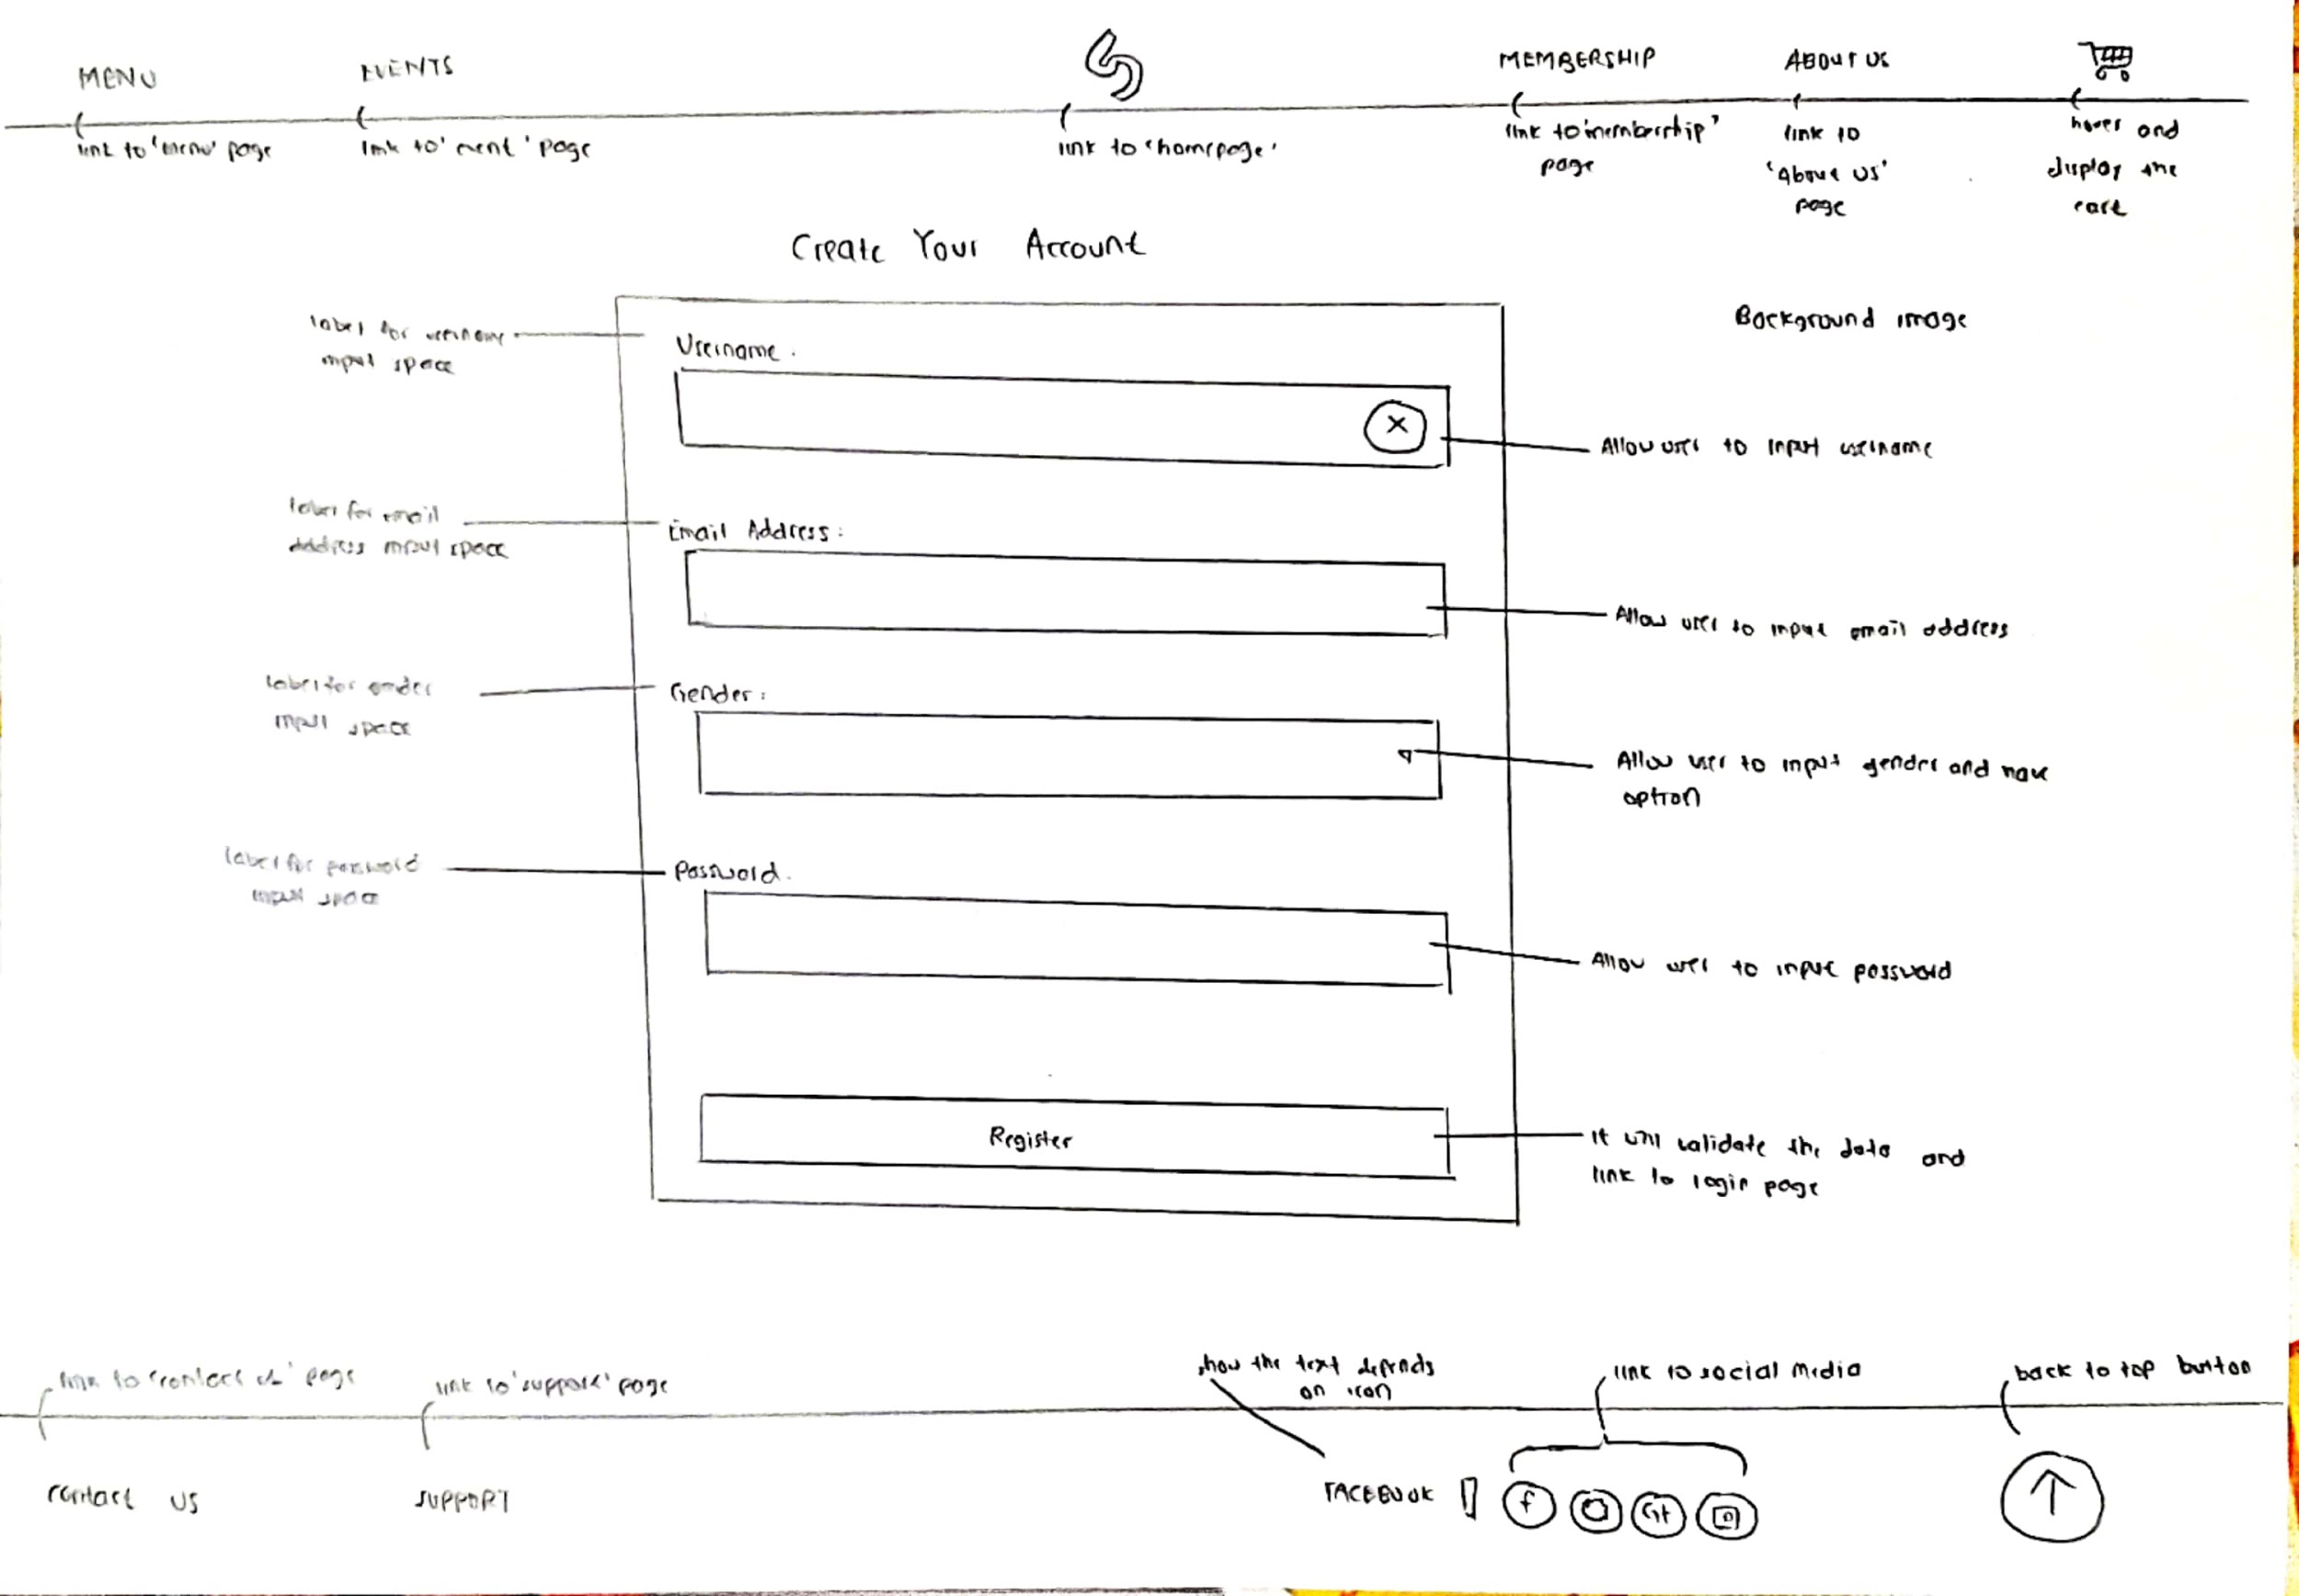 MENU
EVENTS
MEMBERSHIP
ABOUT US
link to 'menu' page
link to 'event' page
link to 'homepage'
link to 'membership'
page
link to
'About us'
page
hover and
display the
cart
Create Your Account
Background image
label for username
input space
Username :
X
Allow user to input username
label for email
address input space
Email Address :
Allow user to input email address
label for gender
input space
Gender :
Allow user to input gender and have
option
label for password
input space
Password :
Allow user to input password
Register
It will validate the data and
link to login page
link to 'contact us' page
link to 'support' page
show the text depends
on icon
link to social media
back to top button
contact us
SUPPORT
FACEBOOK
f
G+